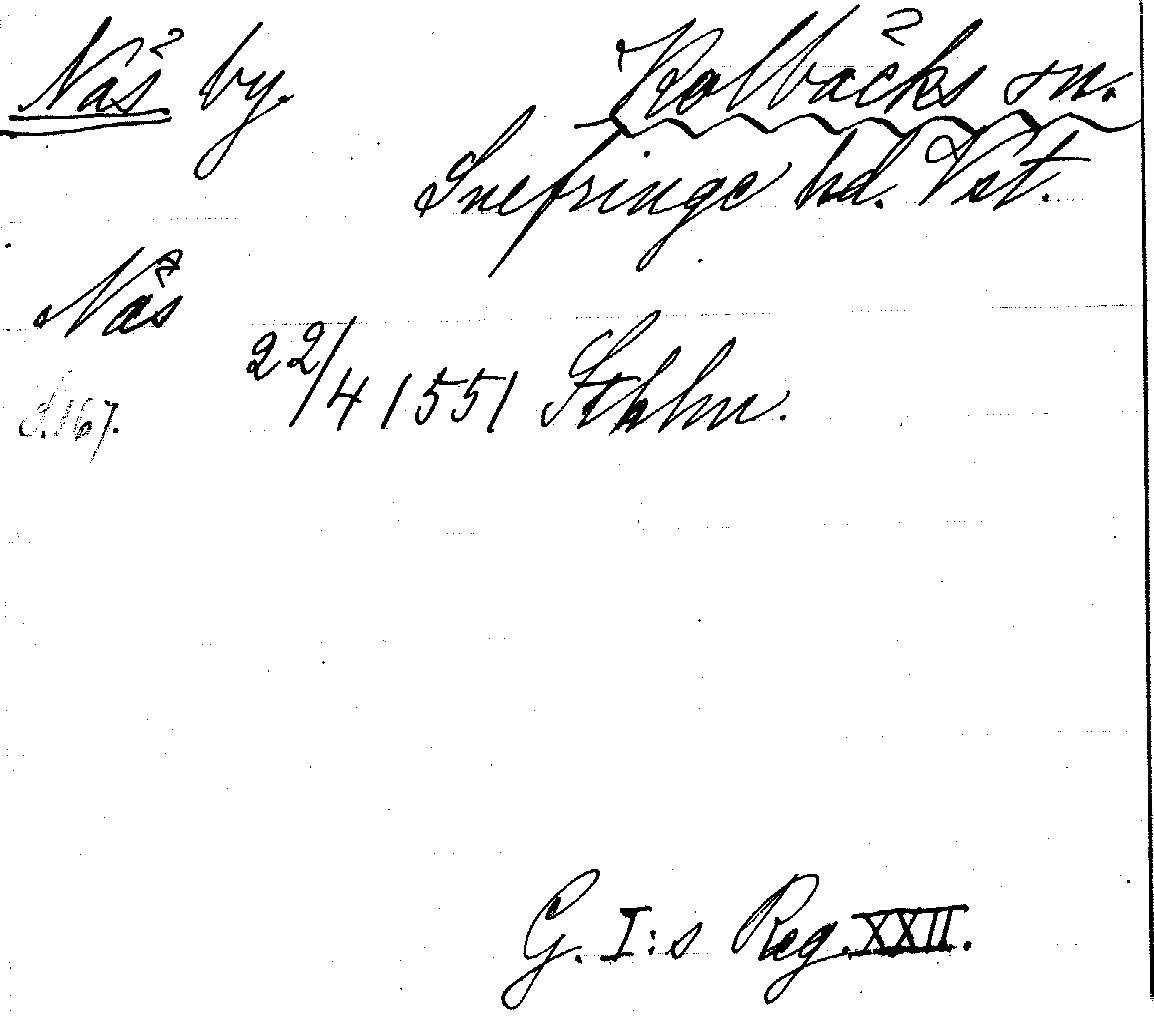 Näs by. Kolbäcks sn.
Snefringe hd. Vst.
Näs
22/4 1551 Sthlm.
S. 167.
G. I:s Reg. XXII.